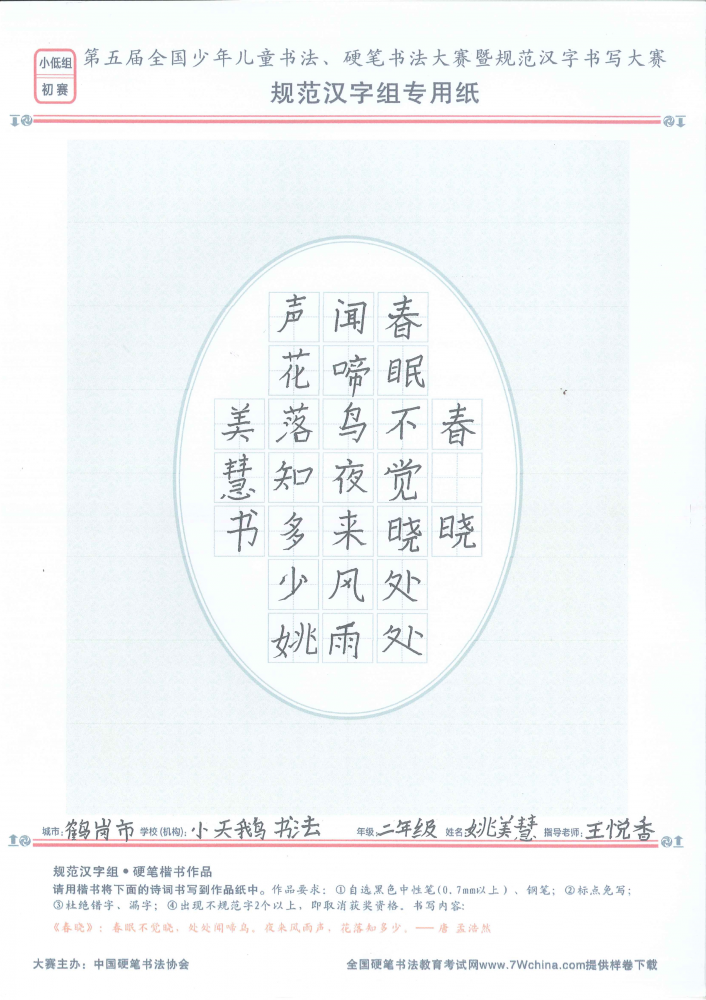 小低组
初赛
第五届全国少年儿童书法、硬笔书法大赛暨规范汉字书写大赛
规范汉字组专用纸
春晓
春眠不觉晓处处
闻啼鸟夜来风雨
声花落知多少姚
美慧书
城市:鹤岗市 学校(机构):小天鹅书法 年级:二年级 姓名:姚美慧 指导老师:王悦香
规范汉字组•硬笔楷书作品
请用楷书将下面的诗词书写到作品纸中。作品要求:①自选黑色中性笔(0.7mm以上)、钢笔;②标点免写;
③杜绝错字、漏字;④出现不规范字2个以上,即取消获奖资格。书写内容:
《春晓》:春眠不觉晓,处处闻啼鸟。夜来风雨声,花落知多少。——唐 孟浩然
大赛主办:中国硬笔书法协会 全国硬笔书法教育考试网www.7Wchina.com提供样卷下载